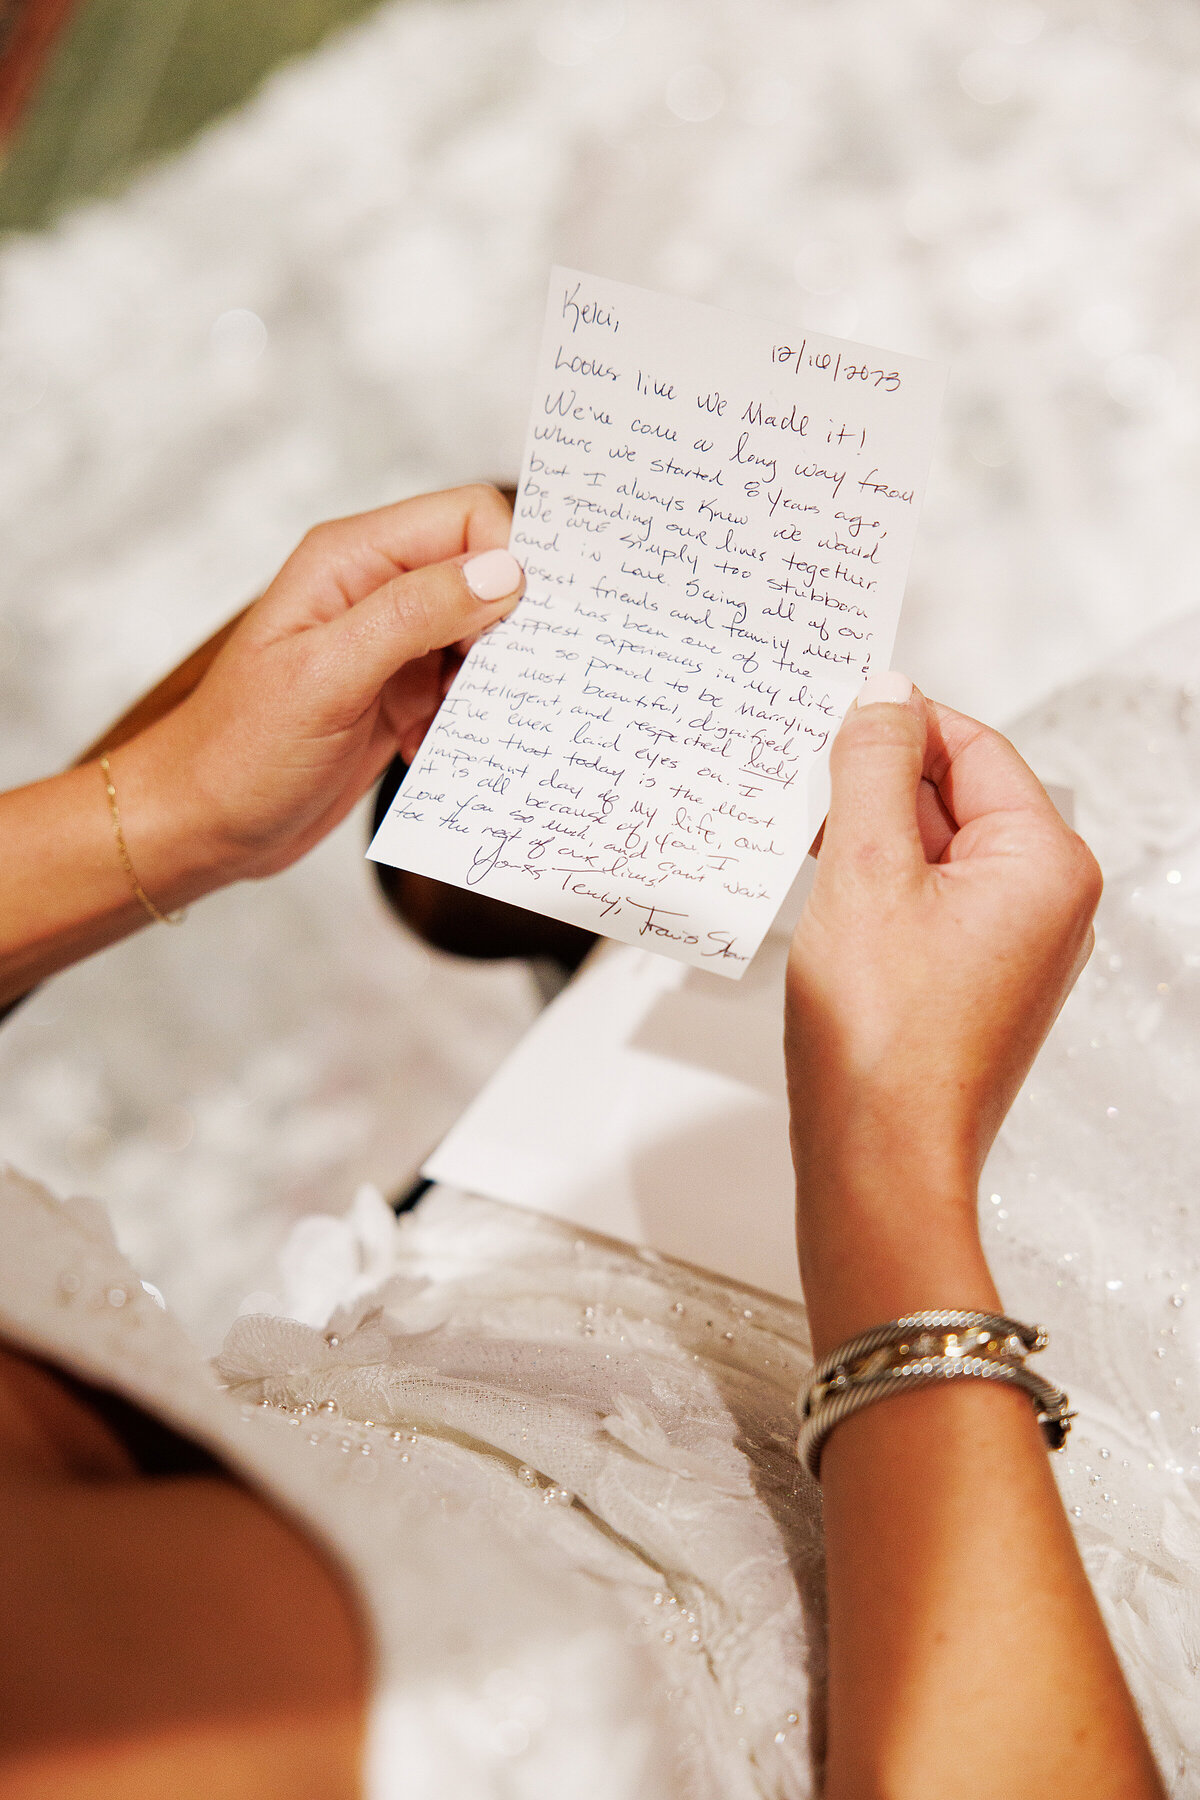 Keki,
12/16/2023
Looks like we Made it!
We've come a long way from
where we started 8 years ago,
but I always knew we would
be spending our lives together.
We are simply too stubborn
and in love. Seeing all of our
closest friends and family meet &
has been one of the
happiest experiences in my life.
I am so proud to be Marrying
the most beautiful, dignified,
intelligent, and respected lady
I've ever laid eyes on. I
know that today is the most
important day of my life, and
it is all because of you. I
love you so much, and can't wait
for the rest of our lives,
Yours Truly, Travis